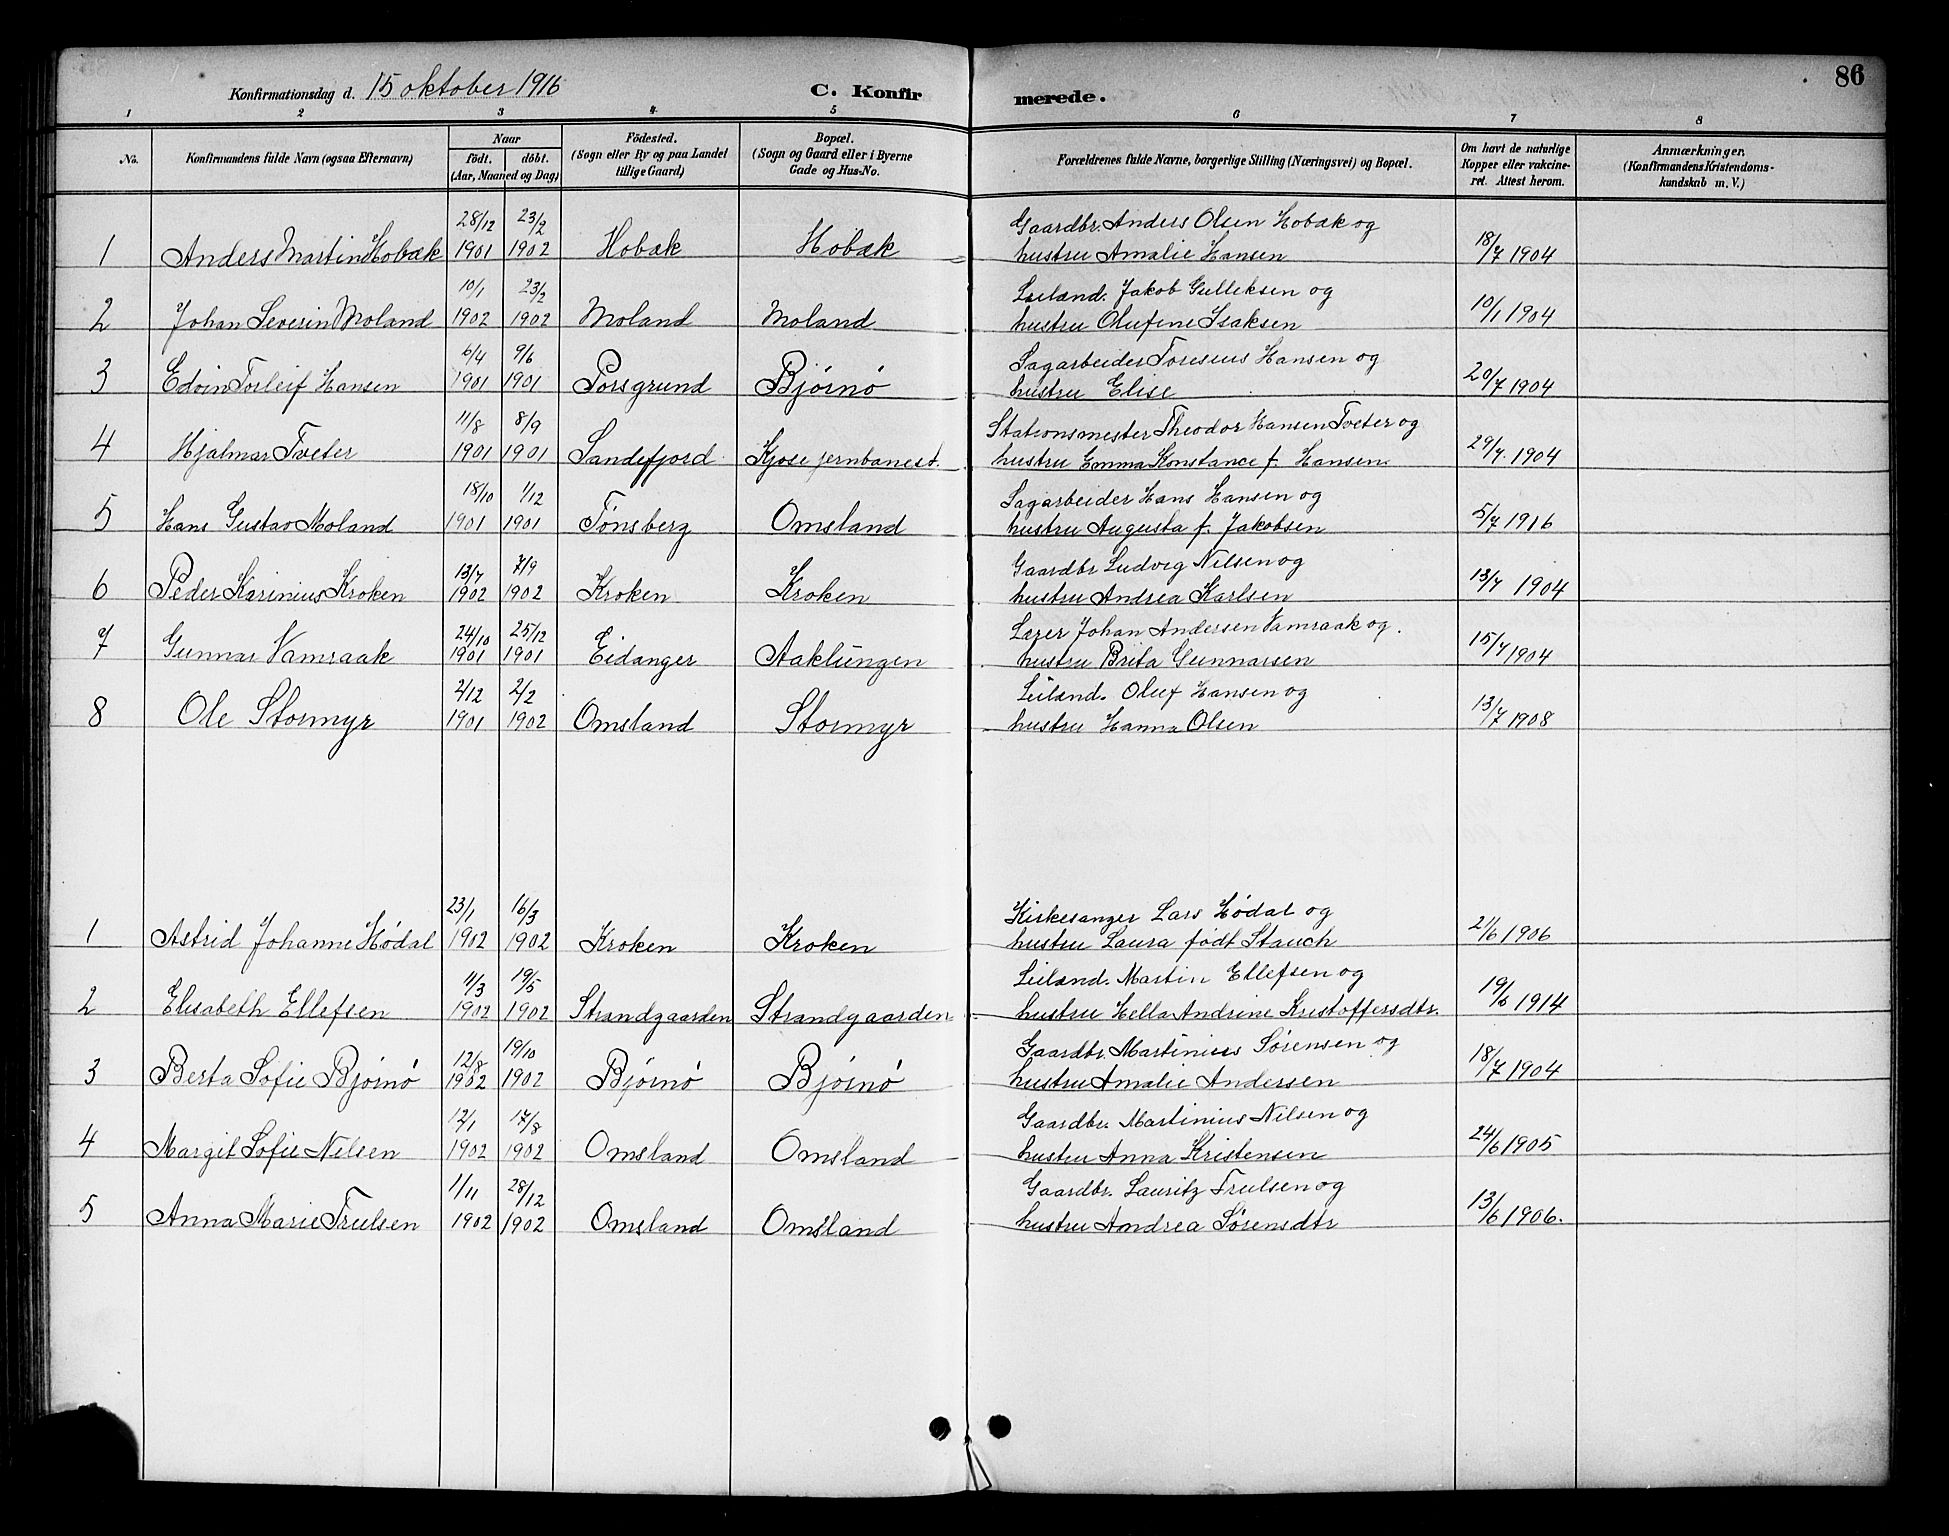 Konfirmationsdag d. 15 oktober 1916 C. Konfirmerede. 86
1 2 3 4 5 6 7 8
No. Konfirmandens fulde Navn (ogsaa Efternavn) Naar födt. döbt. (Aar, Maaned og Dag) Födested. (Sogn eller By og paa Landet tillige Gaard) Bopæl. (Sogn og Gaard eller i Byerne Gade og Hus-No. Forældrenes fulde Navne, borgerlige Stilling (Næringsvei) og Bopæl. Om havt de naturlige Kopper eller vakcineret. Attest herom. Anmærkninger, (Konfirmandens Kristendomskundskab m. V.)
28/12 23/2 Gaardbr. Anders Olsen Hobæk og
1 Anders Martin Hobæk 1901 1902 Hobæk Hobæk hustru Amalie Hansen 18/7 1904
10/1 23/2 Leilænd. Jakob Gulleksen og
2 Johan Severin Moland 1902 1902 Moland Moland hustru Olufine Isaksen 10/1 1904
6/4 9/6 Sagarbeider Toresius Hansen og
3 Edvin Torleif Hansen 1901 1901 Porsgrund Bjørnø hustru Elise 20/7 1904
11/8 8/9 Stationsmester Theodor Hansen Tveter og
4 Hjalmar Tveter 1901 1901 Sandefjord Kjose jernbanest. hustru Emma Konstance f. Hansen 29/7 1904
18/10 1/12 Sagarbeider Hans Hansen og
5 Hans Gustav Moland 1901 1901 Tønsberg Omsland hustru Augusta f. Jakobsen 5/7 1916
13/7 7/9 Gaardbr Ludvig Nilsen og
6 Peder Karinius Kroken 1902 1902 Kroken Kroken hustru Andrea Karlsen 13/7 1904
24/10 25/12 Lærer Johan Andersen Vamraak og
7 Gunnar Vamraak 1901 1901 Eidanger Aaklungen hustru Brita Gunnarsen 15/7 1904
2/12 2/2 Leilænd. Oluf Hansen og
8 Ole Stormyr 1901 1902 Omsland Stormyr hustru Hanna Olsen 13/7 1908
23/1 16/3 Kirkesanger Lars Hødal og
1 Astrid Johanne Hødal 1902 1902 Kroken Kroken hustru Laura født Stauch 21/6 1906
11/3 19/5 Leilænd. Martin Ellefsen og
2 Elisabeth Ellefsen 1902 1902 Strandgaarden Strandgaarden hustru Hella Andrine Kristoffersdtr. 19/6 1914
12/8 19/10 Gaardbr. Martinius Sørensen og
3 Berta Sofie Bjørnø 1902 1902 Bjørnø Bjørnø hustru Amalie Andersen 18/7 1904
12/1 17/8 Gaardbr. Martinius Nilsen og
4 Margit Sofie Nilsen 1902 1902 Omsland Omsland hustru Anna Kristensen 24/6 1905
1/11 28/12 Gaardbr. Lauritz Trulsen og
5 Anna Marie Trulsen 1902 1902 Omsland Omsland hustru Andrea Sørensdtr 13/6 1906.